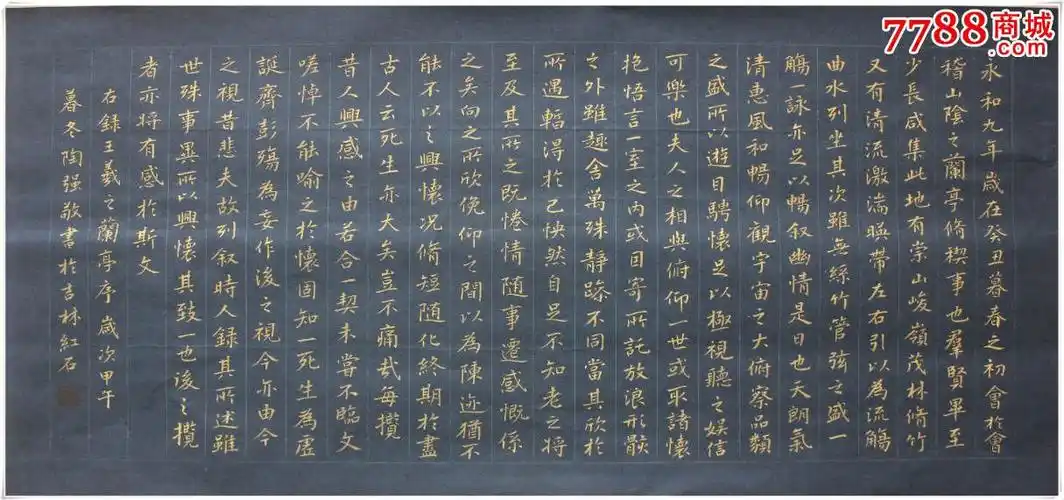 7788商城
.com
永和九年歲在癸丑暮春之初會於會
稽山陰之蘭亭脩禊事也羣賢畢至
少長咸集此地有崇山峻嶺茂林脩竹
又有清流激湍暎帶左右引以為流觴
曲水列坐其次雖無絲竹管弦之盛一
觴一詠亦足以暢叙幽情是日也天朗氣
清惠風和暢仰觀宇宙之大俯察品類
之盛所以遊目騁懷足以極視聽之娛信
可樂也夫人之相與俯仰一世或取諸懷
抱悟言一室之內或因寄所託放浪形骸
之外雖趣舍萬殊靜躁不同當其欣於
所遇暫得於己怏然自足不知老之將
至及其所之既惓情隨事遷感慨係
之矣向之所欣俛仰之間以為陳迹猶不
能不以之興懷況脩短隨化終期於盡
古人云死生亦大矣豈不痛哉每攬
昔人興感之由若合一契未嘗不臨文
嗟悼不能喻之於懷固知一死生為虛
誕齊彭殤為妄作後之視今亦由今
之視昔悲夫故列叙時人錄其所述雖
世殊事異所以興懷其致一也後之攬
者亦將有感於斯文
右錄王羲之蘭亭序歲次甲午
暮冬陶强敬書於吉林紅石